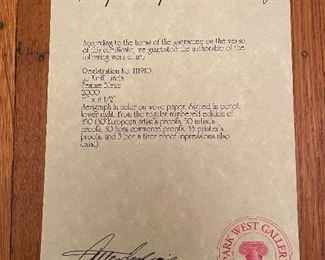 According to the terms of the guarantee on the verso
of this certificate, we guarantee the authorship of the
following work of art:
Registration No. 111910
Femme Bleue
2000
x 8 1/2"
Serigraph in color on wove paper. Signed in pencil,
lower right. From the regular numbered edition of
350 (50 European artist's proofs, 50 artist's
proofs, 30 hors commerce proofs, 35 printer's
proofs, and 3 bon a tirer proof impressions also
exist).
PARK WEST GALLERY